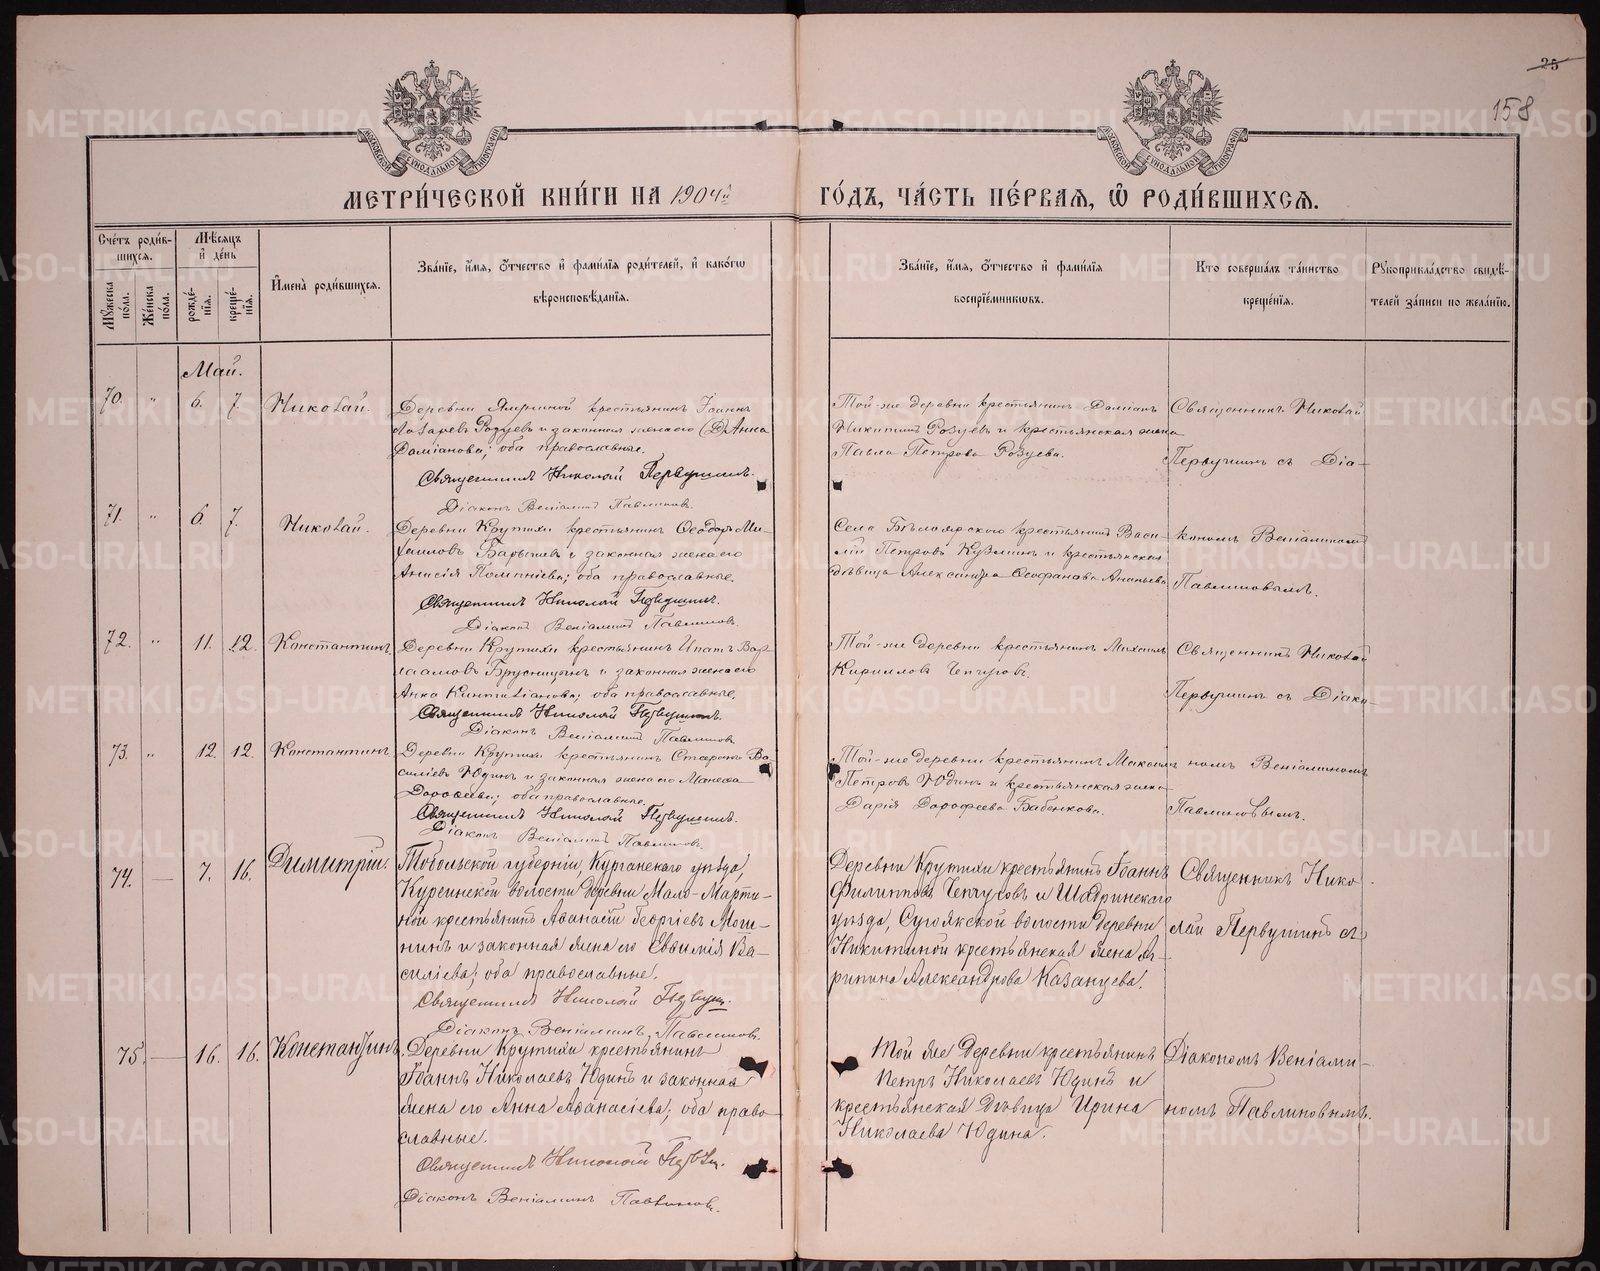 25
158
МОСКОВСКОЙ СѴНОДАЛЬНОЙ ТИПОГРАФІИ
МОСКОВСКОЙ СѴНОДАЛЬНОЙ ТИПОГРАФІИ
МЕТРИ́ЧЕСКОЙ КНИ́ГИ НА 1904й ГО́ДЪ, ЧА́СТЬ ПЕ́РВАЯ, Ѽ РОДИ́ВШИХСЯ.
Сче́тъ роди́в-
шихся.
Мꙋ́жеска по́ла.
Же́нска по́ла.
Мѣ́сяцъ и҆ де́нь
рожде́-
нїѧ.
креще́-
нїѧ.
И҆мена̀ роди́вшихся.
Зва́нїе, и҆́мя, ѻ҆́тчество и҆ фами́лїя роди́телей, и҆ како́гѡ
вѣроисповѣ́данїя.
Зва́нїе, и҆́мя, ѻ҆́тчество и҆ фами́лїя
воспрїе́мникѡвъ.
Кто̀ соверша́лъ та́инство
креще́нїя.
Рꙋкоприкла́дство свидѣ́-
телей за́писи по жела́нїю.
Май.
70. " 6. 7. Николай.
Деревни Ямриной крестьянинъ Іоаннъ
Лазаревъ Розуевъ и законная жена его Анна
Даміанова; оба православные.
Священникъ Николай Первушинъ.
Діаконъ Веніаминъ Павлиновъ.
Той-же деревни крестьянинъ Даміанъ
Никитинъ Розуевъ и крестьянская жена
Павла Петрова Розуева.
Священникъ Николай
Первушинъ съ Діа-
71. " 6. 7. Николай.
Деревни Крутихи крестьянинъ Ѳеодоръ Ми-
хаиловъ Барышевъ и законная жена его
Анисія; оба православные.
Священникъ Николай Первушинъ.
Діаконъ Веніаминъ Павлиновъ.
Села Бѣлоярского крестьянинъ Васи-
лій Петровъ Кузминъ и крестьянская
дѣвица Александра Ѳеофанова Ананьева
кономъ Веніаминомъ
Павлиновымъ.
72. " 11. 12. Константинъ.
Деревни Крутихи крестьянинъ Ипатъ Вар-
лаамовъ Брусницынъ и законная жена его
Анна Кинтиліанова; оба православные.
Священникъ Николай Первушинъ.
Діаконъ Веніаминъ Павлиновъ.
Той-же деревни крестьянинъ Михаилъ
Кирилловъ Чепчуговъ.
Священникъ Николай
Первушинъ съ Діако-
73. " 12. 12. Константинъ.
Деревни Крутихи крестьянинъ Стефанъ Ва-
силіевъ Юдинъ и законная жена его
Дороѳеева; оба православные.
Священникъ Николай Первушинъ.
Діаконъ Веніаминъ Павлиновъ.
Той-же деревни крестьянинъ Максимъ
Петровъ Юдинъ и крестьянская жена
Дарія Дорофеева Бабенкова.
номъ Веніаминомъ
Павлиновымъ.
74. — 7. 16. Димитрій.
Тобольской губерніи, Курганскаго уѣзда,
Куреинской волости деревни Мало-Марти-
ной крестьянинъ Аѳанасій Георгіевъ Моги-
нинъ и законная жена его Евѳимія Ва-
силіева; оба православные.
Священникъ Николай Первуш.
Діаконъ Веніаминъ Павлиновъ.
Деревни Крутихи крестьянинъ Іоаннъ
Филипповъ Чепчуговъ и Шадринскаго
уѣзда, Сугоякской волости деревни
Никитиной крестьянская жена А-
грипина Александрова Казанцева.
Священникъ Нико-
лай Первушинъ съ
75. — 16. 16. Константинъ.
Деревни Крутихи крестьянинъ
Іоаннъ Николаевъ Юдинъ и законная
жена его Анна Аѳанасіева; оба право-
славные.
Священникъ Николай Первуш.
Діаконъ Веніаминъ Павлиновъ.
Той же деревни крестьянинъ
Петръ Николаевъ Юдинъ и
крестьянская дѣвица Ирина
Николаева Юдина.
Діакономъ Веніами-
номъ Павлиновымъ.
METRIKI.GASO-URAL.RU